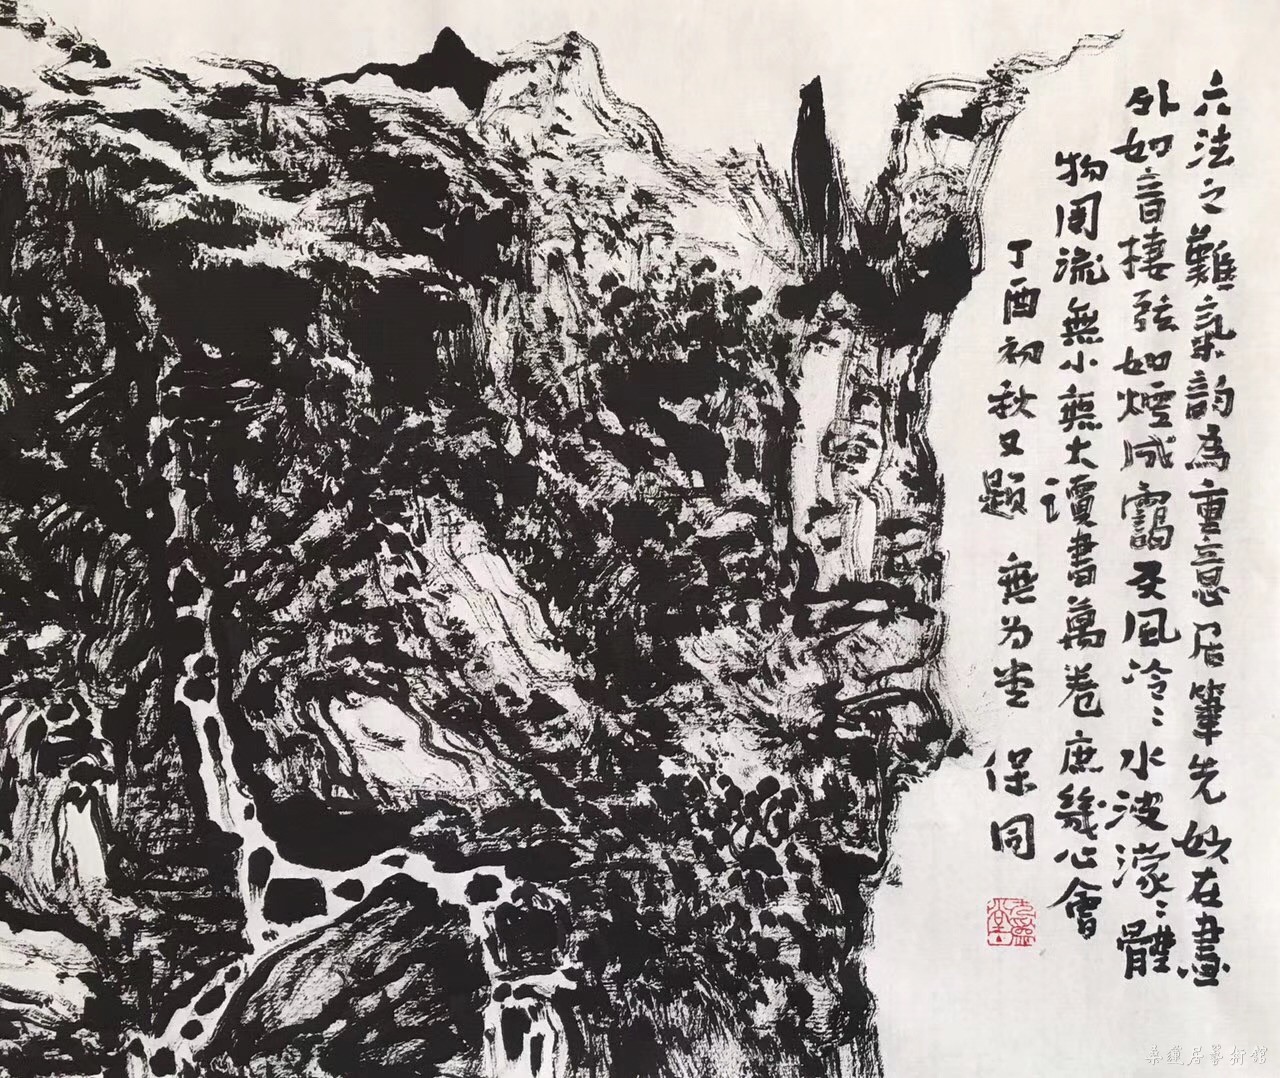 六法之難氣韵為重意居筆先妙在畫
外如音棲弦如煙成靄天風泠〻水波濛〻體
物周流無小無大讀書萬卷庶幾心會
丁酉初秋又題 無为堂 保同
桑蓮居藝術館